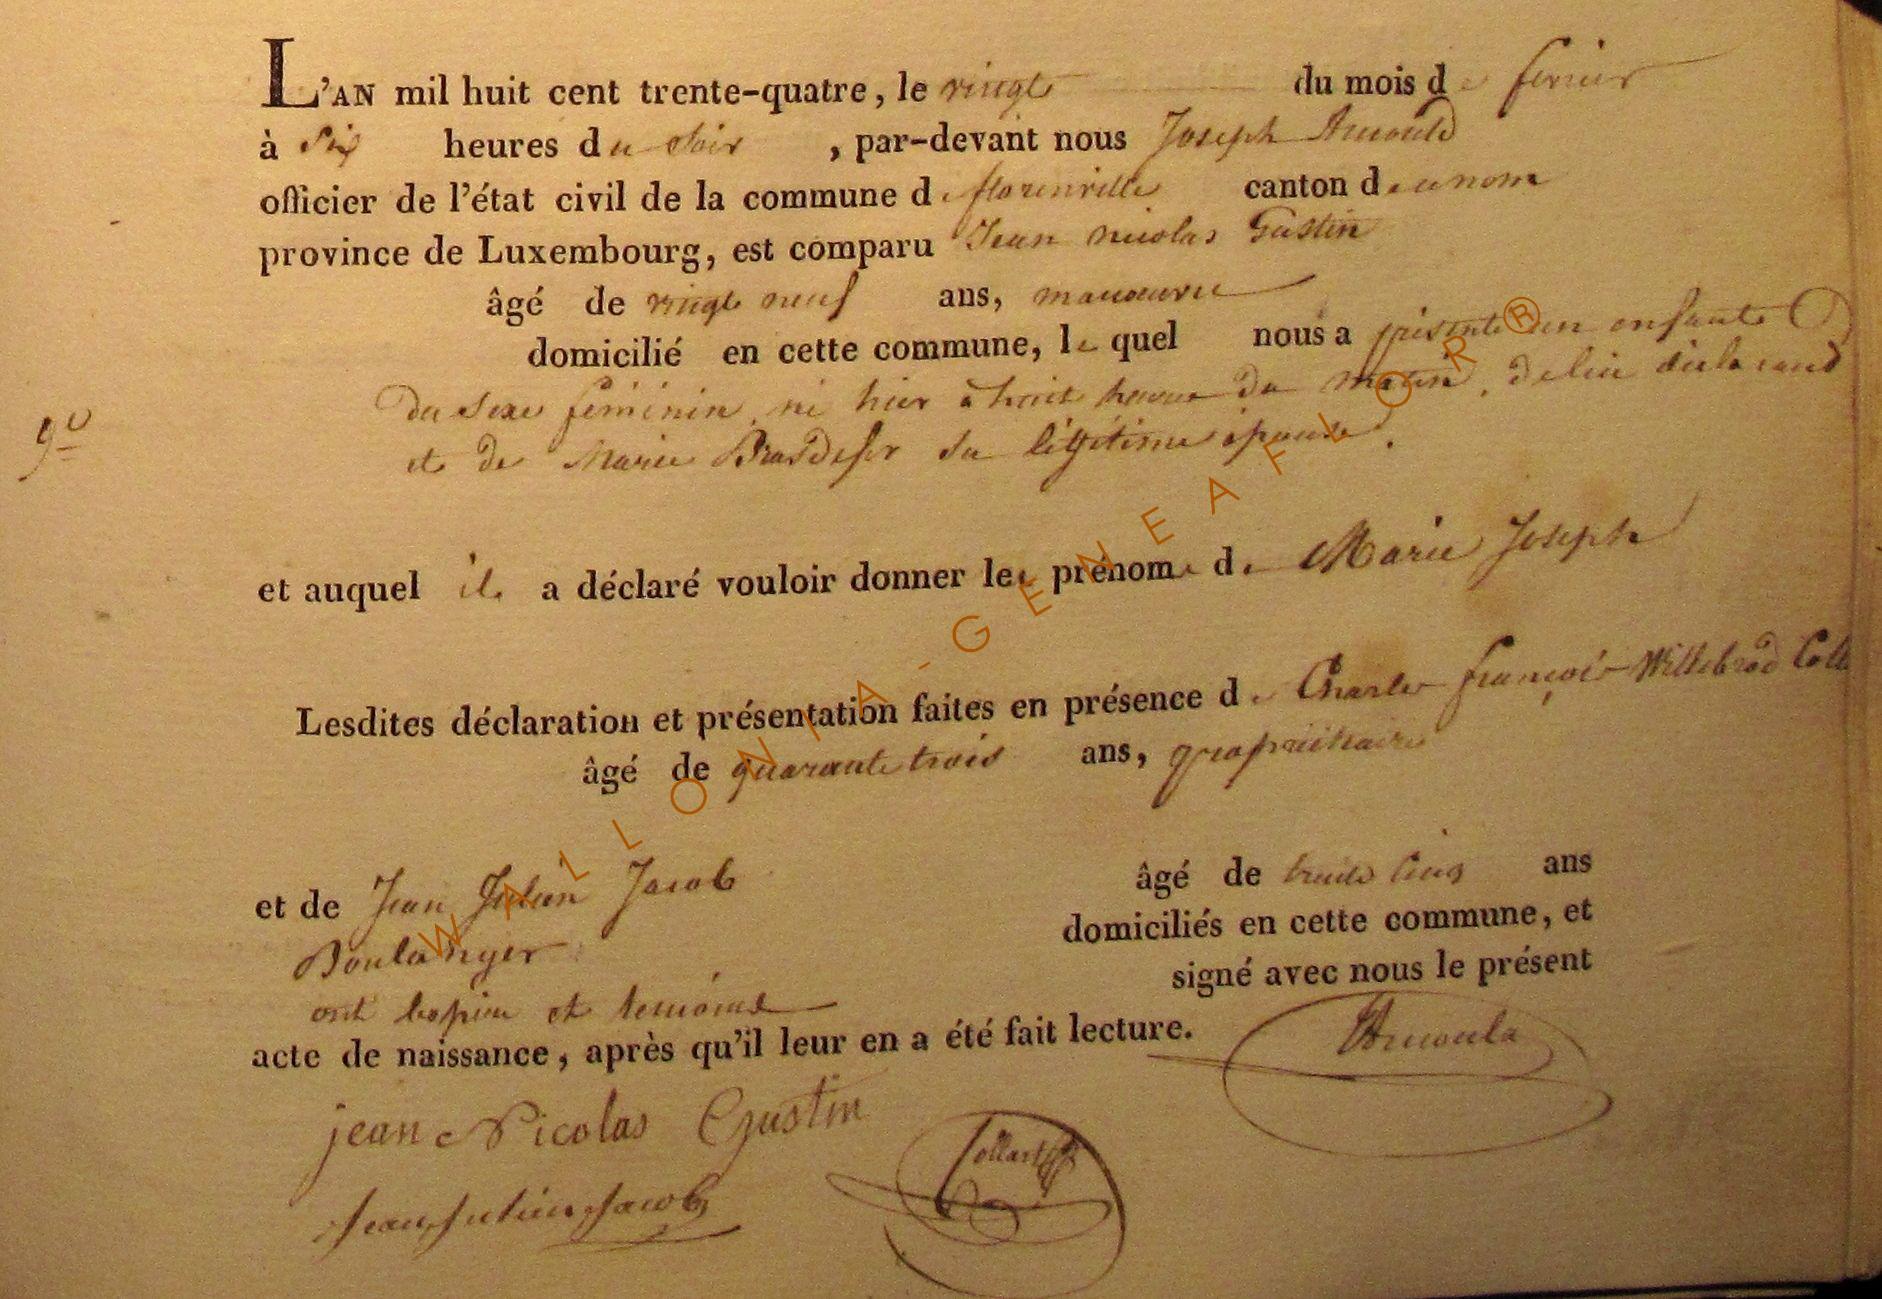 L'AN mil huit cent trente-quatre, le vingt du mois de fevrier
à six heures du soir, par-devant nous Joseph Arnould
officier de l'état civil de la commune de florenville canton de ce nom
province de Luxembourg, est comparu Jean nicolas Gustin
âgé de vingt neuf ans, manoeuvre
domicilié en cette commune, le quel nous a présenté un enfant
du sexe féminin, né hier à huit heures du matin, de lui déclarant
9e
et de Marie Brasdefer sa légitime épouse.
et auquel il a déclaré vouloir donner les prénoms de Marie Joseph
Lesdites déclaration et présentation faites en présence de Charles françois Willebrod Coll
âgé de quarante trois ans, propriétaire
et de Jean Julien Jacob âgé de trente cinq ans
Boulanger domiciliés en cette commune, et
ont le père et témoins signé avec nous le présent
acte de naissance, après qu'il leur en a été fait lecture.
JArnould
jean Nicolas Gustin
Collart
jean julien jacob
WALLONIA-GENEAFLOR®